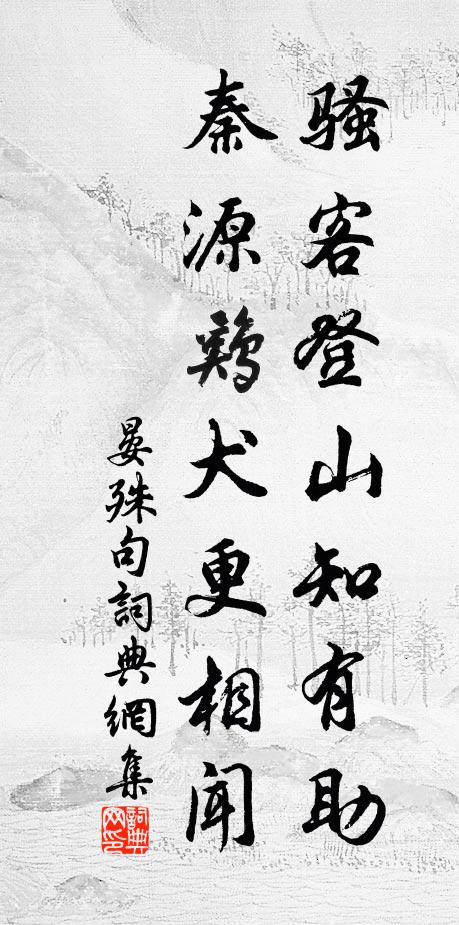 骚客登山知有助
秦源鷄犬更相闻
晏殊句詞典網集
詞典网印